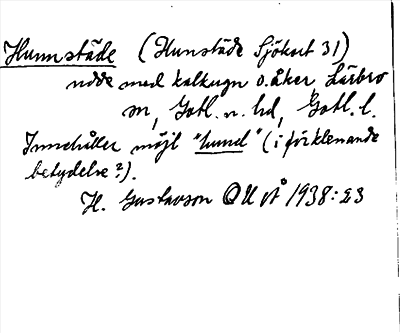 Hunnstäde (Hunstäde Sjökort 31)
udde med kalkugn o. åker Lärbro
sn, Gotl. n. hd, Gotl. l.
Innehåller möjl "hund" (i förklenande
betydelse?).
H. Gustavson OUÅ 1938:23